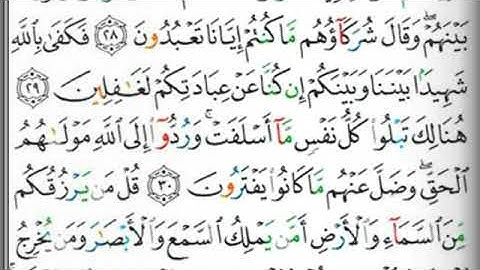 بَيْنَهُمْ ۖ وَقَالَ شُرَكَآؤُهُم مَّا كُنتُمْ إِيَّانَا تَعْبُدُونَ ٢٨ فَكَفَىٰ بِٱللَّهِ
شَهِيدًۢا بَيْنَنَا وَبَيْنَكُمْ إِن كُنَّا عَنْ عِبَادَتِكُمْ لَغَٰفِلِينَ ٢٩
هُنَالِكَ تَبْلُوا۟ كُلُّ نَفْسٍ مَّآ أَسْلَفَتْ ۚ وَرُدُّوٓا۟ إِلَى ٱللَّهِ مَوْلَىٰهُمُ
ٱلْحَقِّ ۖ وَضَلَّ عَنْهُم مَّا كَانُوا۟ يَفْتَرُونَ ٣٠ قُلْ مَن يَرْزُقُكُم
مِّنَ ٱلسَّمَآءِ وَٱلْأَرْضِ أَمَّن يَمْلِكُ ٱلسَّمْعَ وَٱلْأَبْصَٰرَ وَمَن يُخْرِجُ